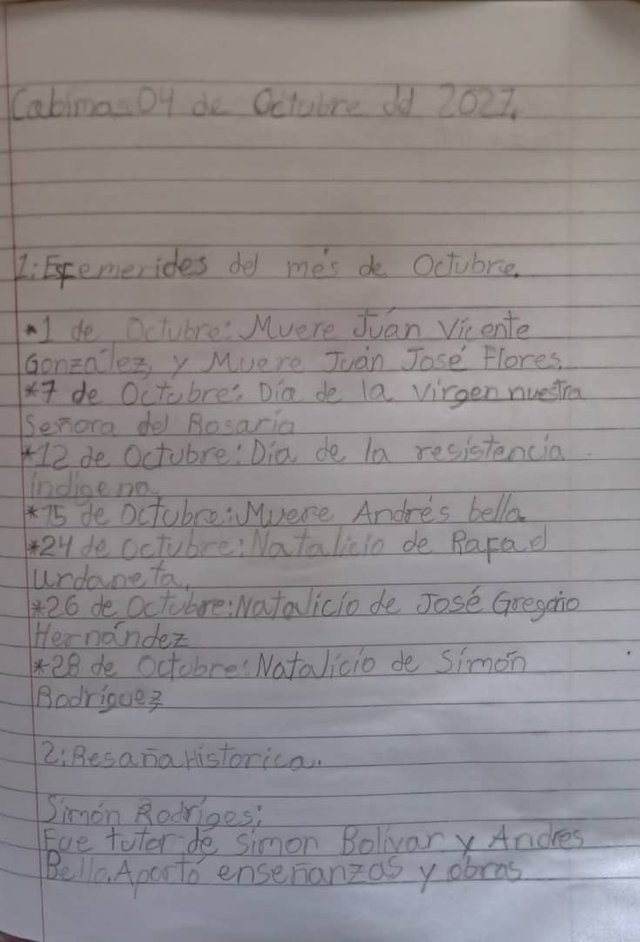 Cabimas 04 de Octubre dd 2021.
1: Esfemerides del més de Octubre.
*1 de Octubre: Muere Juán Vicente
González, y Muere Juán José Flores.
*7 de Octubre: Día de la Virgen nuestra
Señora del Rosario
*12 de Octubre: Día de la resistencia
indigena,
*15 de Octubre: Muere Andrés bello.
*24 de Octubre: Natalicio de Rafael
Urdaneta,
*26 de Octubre: Natalicio de José Gregorio
Hernández
*28 de Octubre: Natalicio de Simón
Rodríguez
2: Resaña Historica.
Simón Rodríges:
Fue tutor de simon Bolívar y Andres
Bello. Aportó enseñanzas y obras